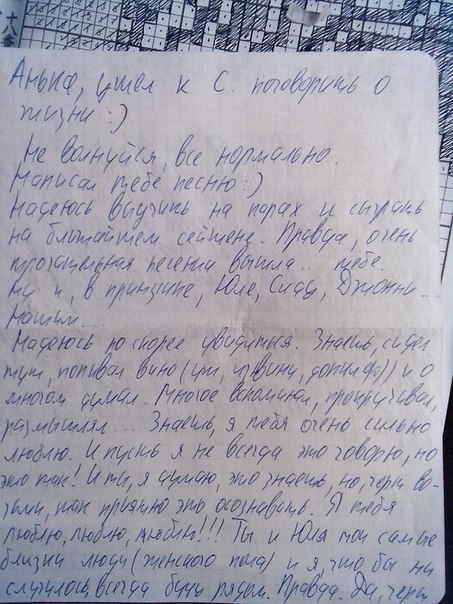 十八番
Анька, ушел к С. поговорить о
жизни :)
Не волнуйся, все нормально.
Написал тебе песню :)
Надеюсь выучить на парах и сыграть
на ближайшем сейшене. Правда, очень
прощательная песенка вышла... тебе.
Ну и, в принципе, Юле, Сиду, Джонни...
Нашим...
Надеюсь по скорее увидиться. Знаешь, сидел
тут, попивал вино (упс, извини, допил) и о
многом думал. Многое вспоминал, прокручивал,
размышлял... Знаешь, я тебя очень сильно
люблю. И пусть я не всегда это говорю, но
это так! И ты, я думаю, это знаешь, но, черт во-
зьми, как приятно это осознавать. Я тебя
люблю, люблю, люблю!!! Ты и Юля мои самые
близки люди (женского пола) и я, что бы ни
случилось, всегда буду рядом. Правда. Да, черт